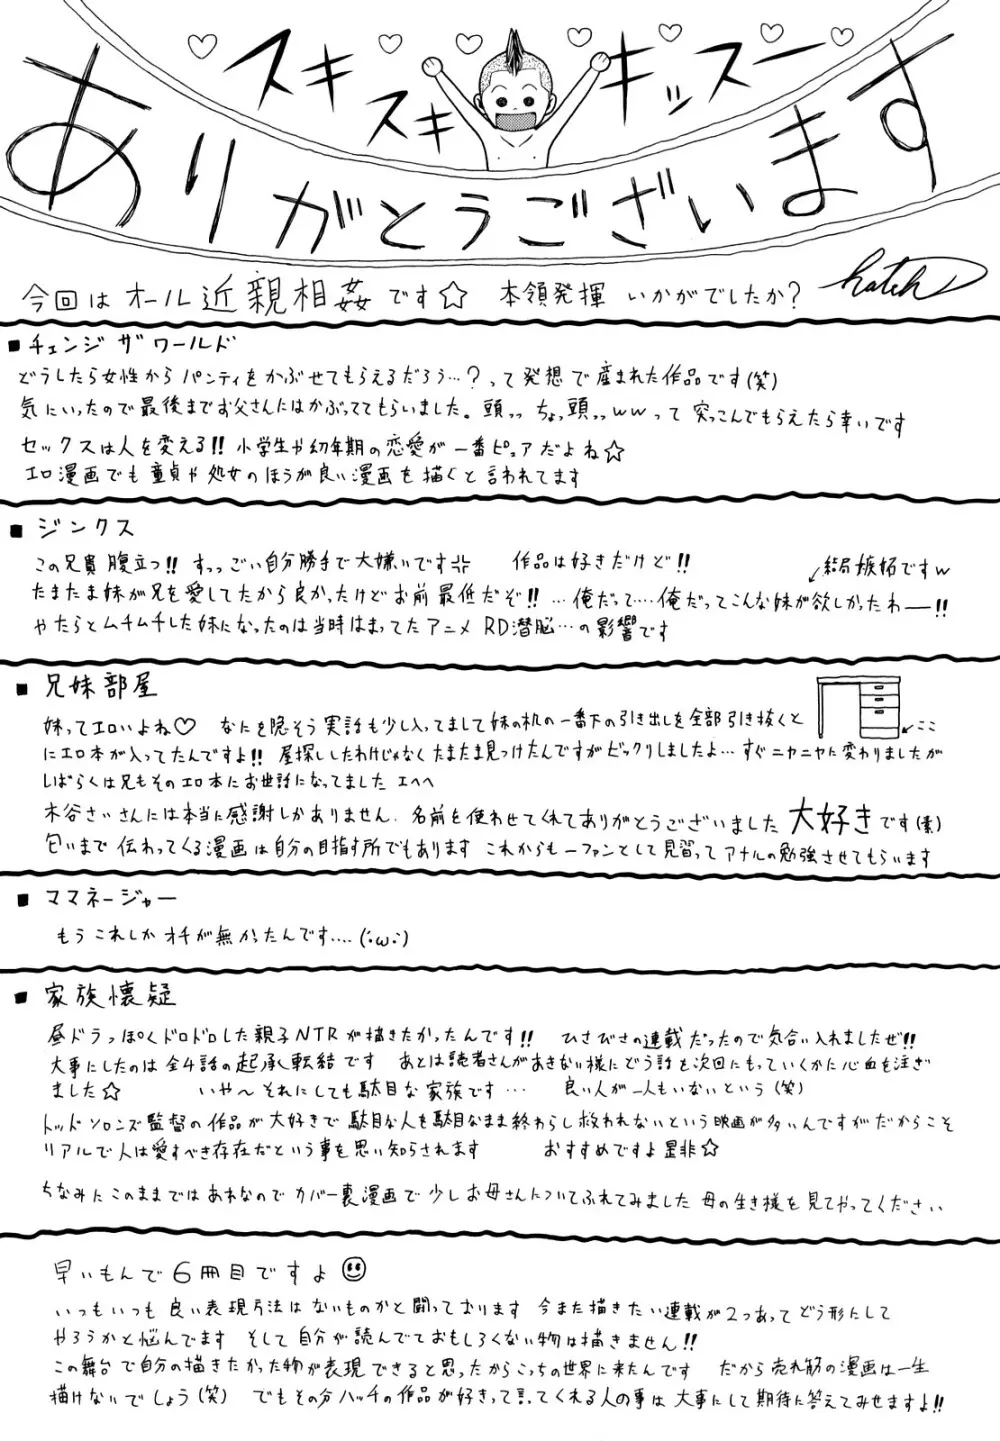 スキスキキッスー
ありがとうございます
hatch
今回は オール近親相姦です☆ 本領発揮 いかがでしたか?
■チェンジ ザ ワールド
どうしたら女性から パンティをかぶせてもらえるだろう…?って発想で産まれた作品です(笑)
気にいったので最後までお父さんにはかぶっててもらいました。頭ッッ ちょっ頭ッッwwって 突っこんでもらえたら幸いです
セックスは人を変える!! 小学生や幼年期の恋愛が一番ピュアだよね☆
エロ漫画でも童貞や処女のほうが良い漫画を描くと言われてます
■ジンクス
この兄貴腹立つ!! すっっごい自分勝手で大嫌いです 作品は好きだけど!! 結局嫉妬ですw
たまたま妹が兄を愛してたから良かったけどお前最低だぞ!! …俺だって…俺だってこんな妹が欲しかったわー!!
やたらとムチムチした妹になったのは当時はまってたアニメ RD潜脳…の影響です
■兄妹部屋
妹ってエロいよね♡ なにを隠そう実話も少し入ってまして妹の机の一番下の引き出しを全部引き抜くと ここ
にエロ本が入ってたんですよ!! 屋探ししたわけじゃなくたまたま見つけたんですがビックリしましたよ…すぐニヤニヤに変わりましたが
しばらくは兄もそのエロ本にお世話になってました エヘヘ
木谷さいさんには本当に感謝しかありません、名前を使わせてくれてありがとうございました 大好きです(素)
匂いまで伝わってくる漫画は自分の目指す所でもあります これからも一ファンとして見習ってアナルの勉強させてもらいます
■ママネージャー
もうこれしかオチが無かったんです….(´・ω・`)
■家族懐疑
昼ドラっぽくドロドロした親子NTRが描きたかったんです!! ひさびさの連載だったので気合い入れましたぜ!!
大事にしたのは全4話の起承転結です あとは読者さんがあきない様にどう話を次回にもっていくかに心血を注ぎ
ました☆ いや〜それにしても駄目な家族です… 良い人が一人もいないという(笑)
トッド ソロンズ監督の作品が大好きで駄目な人を駄目なまま終わらし救われないという映画が多いんですがだからこそ
リアルで人は愛すべき存在だという事を思い知らされます おすすめですよ是非☆
ちなみにこのままではあれなのでカバー裏漫画で少しお母さんについてふれてみました 母の生き様を見てやってください
早いもんで6冊目ですよ
いつもいつも良い表現方法はないものかと闘っております 今また描きたい連載が2つあってどう形にして
やろうかと悩んでます そして自分が読んでておもしろくない物は描きません!!
この舞台で自分の描きたかった物が表現できると思ったからこっちの世界に来たんです だから売れ筋の漫画は一生
描けないでしょう(笑) でもその分ハッチの作品が好きって言ってくれる人の事は大事にして期待に答えてみせますよ!!